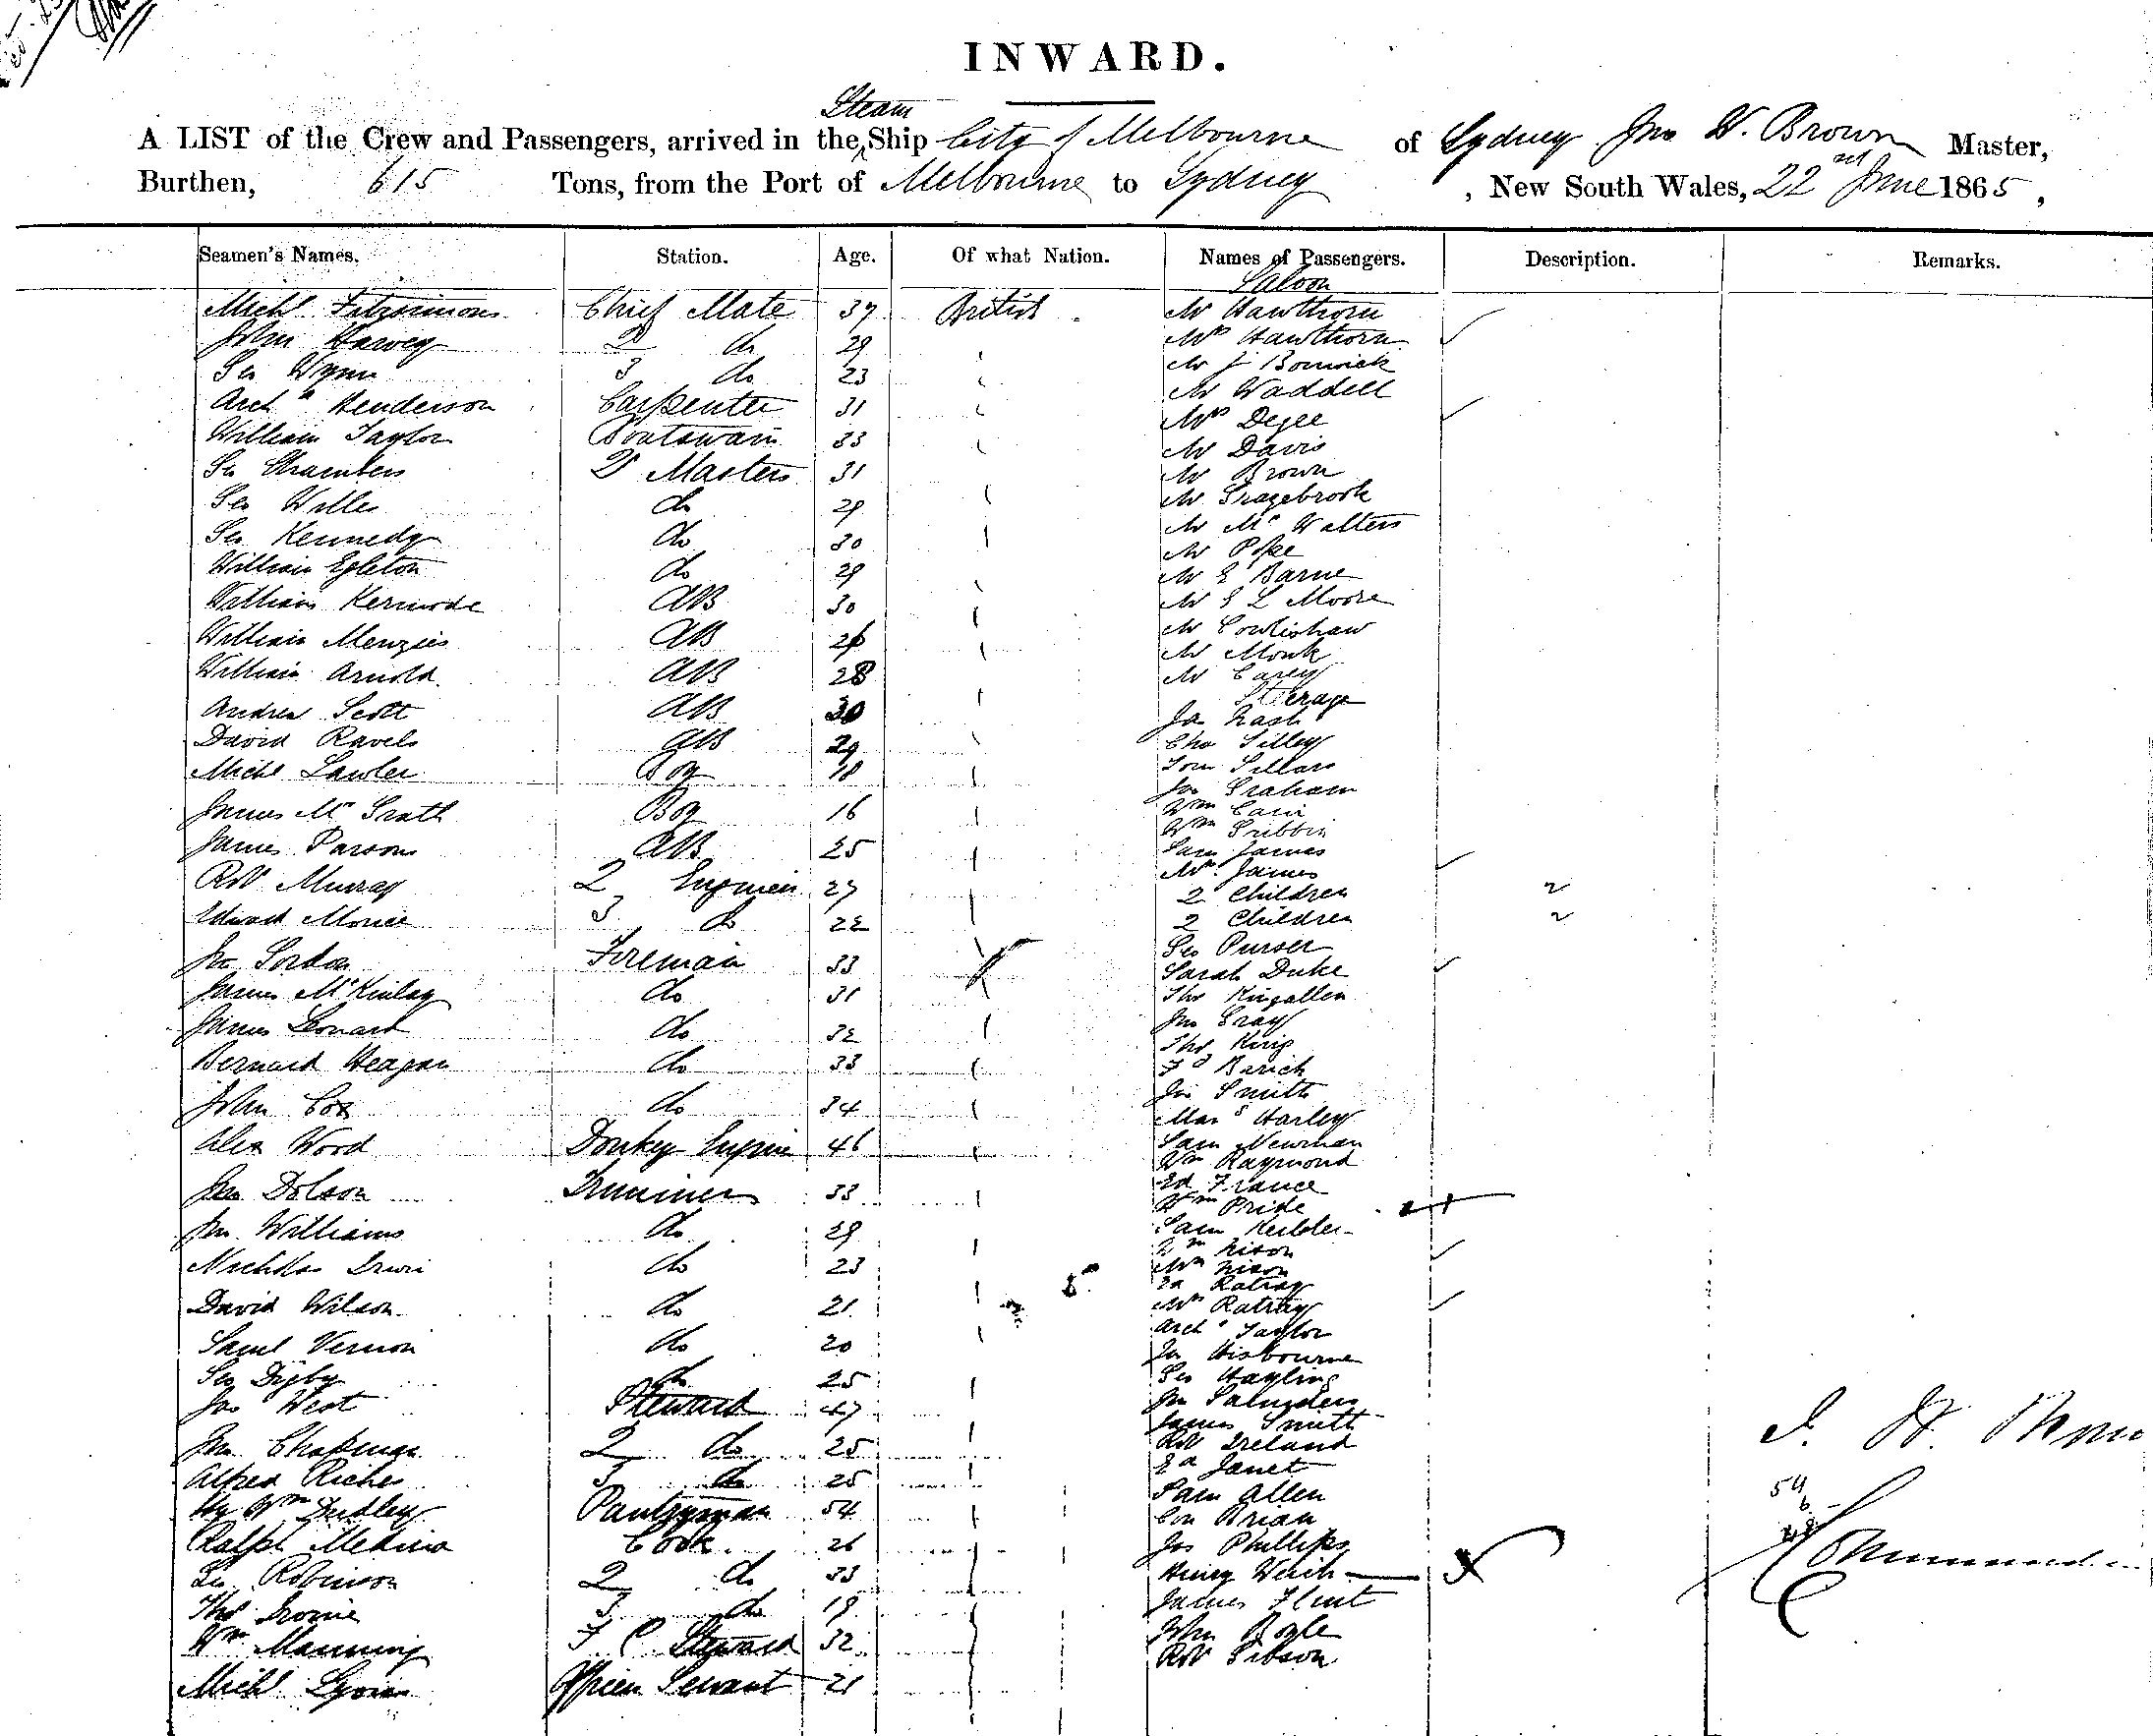 INWARD.
Steam
A LIST of the Crew and Passengers, arrived in the Ship City of Melbourne of Sydney Jno W. Brown Master,
Burthen, 615 Tons, from the Port of Melbourne to Sydney , New South Wales, 22nd June 1865,
Seamen's Names. Station. Age. Of what Nation. Names of Passengers. Description. Remarks.
Saloon
Michl Fitzsimons Chief Mate 37 British Mr Hawthorn
John Harvey 2 do 29 Mrs Hawthorn
Geo Wynn 3 do 23 Mr J Bonwick
Archd Henderson Carpenter 31 Mr Waddell
William Taylor Boatswain 33 Mrs Degee
Geo Chambers Qr Masters 31 Mr Davis
Geo Wills do 29 Mr Brown
Geo Kennedy do 30 Mr Grazebrook
William Egleton do 29 Mr McWalters
William Kermode AB 30 Mr Pope
William Menzies AB 26 Mr E Barne
William Arnold AB 28 Mr S L Moore
Andrew Scott AB 30 Mr Cowlishaw
David Ravels AB 29 Mr Monk
Michl Lawler Boy 18 Mr Carey
James McGrath Boy 16 Steerage
James Parsons AB 25 Ja Nash
Robt Murray 2 Engineer 27 Chas Silley
Edward Morice 3 do 22 Tom Sillars
Jno Gordon Fireman 33 Jas Graham
James McKinlay do 31 Wm Cain
James Leonard do 32 Wm Gribbin
Bernard Heagan do 33 Sam James
John Cox do 34 Mrs James
Alex Wood Donkey Engine 46 2 Children 2
Jas Dolson Trimmer 33 2 Children 2
Jno Williams do 29 Geo Purser
Nicholas Irwin do 23 Sarah Duke
David Wilson do 21 Thos Kingallen
Saml Vernon do 20 Jno Gray
Geo Digby do 25 Thos King
Jas West Steward 47 Fd Barich
Jno Chapman 2 do 25 Jno Smith
Alfred Riches 3 do 25 Mars Harley
Hy Wm Dudley Pantryman 54 Sam Newman
Ralph Medina Cook 26 Wm Raymond
Geo Robinson 2 do 33 Ed France
Thos 3 do 19 Wm Pride
Wm Manning F C Steward 32 Sam
Michl Officers Servant 21 Wm Nixon
Mrs Nixon
Ed Ratray
Mrs Ratray
Archd Taylor
Jn Hisbourne
Geo Hayling
Jno Saunders
James Smith
Robt Ireland
Ed Janet
Sam Allen
Con Brian
Jos Phillips
Henry
James Flint
John Boyle
Robt Gibson
54
6